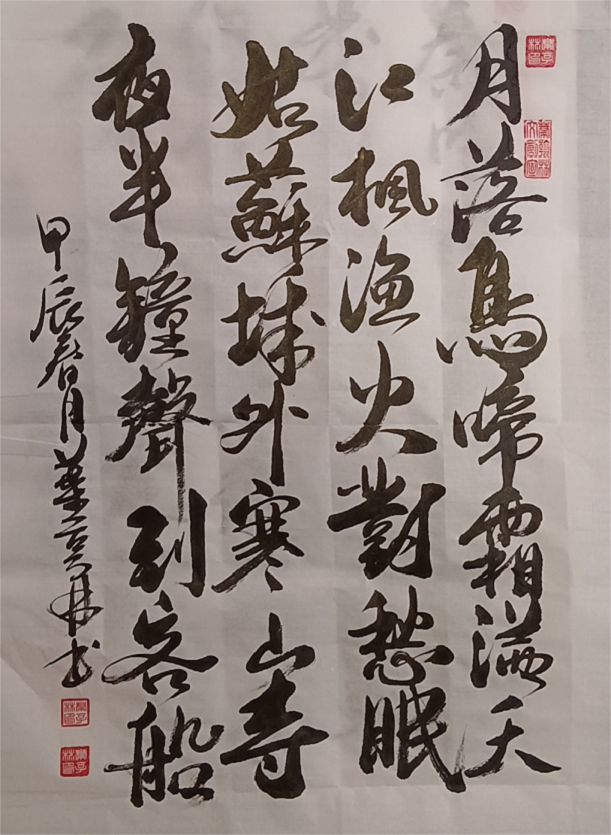 月落烏啼霜滿天
江楓漁火對愁眠
姑蘇城外寒山寺
夜半鐘聲到客船
甲辰春月葉亮林书